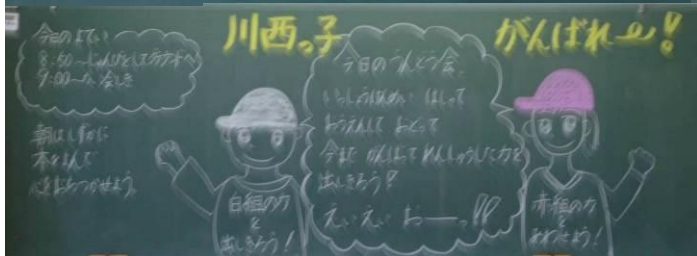 川西っ子 がんばれー!
今日のよてい
8:50〜じゅんびをして
9:00〜 会しき
朝はしずかに
本をよんで
心をおちつかせよう。
今日のうんどう会、
いっしょうけんめい はしって
おうえんして おどって
今まで がんばって れんしゅうした力を
出しきろう!
えいえい おーーっ!!
白組の力
を
出しきろう!
赤組の力
を
あわせよう!